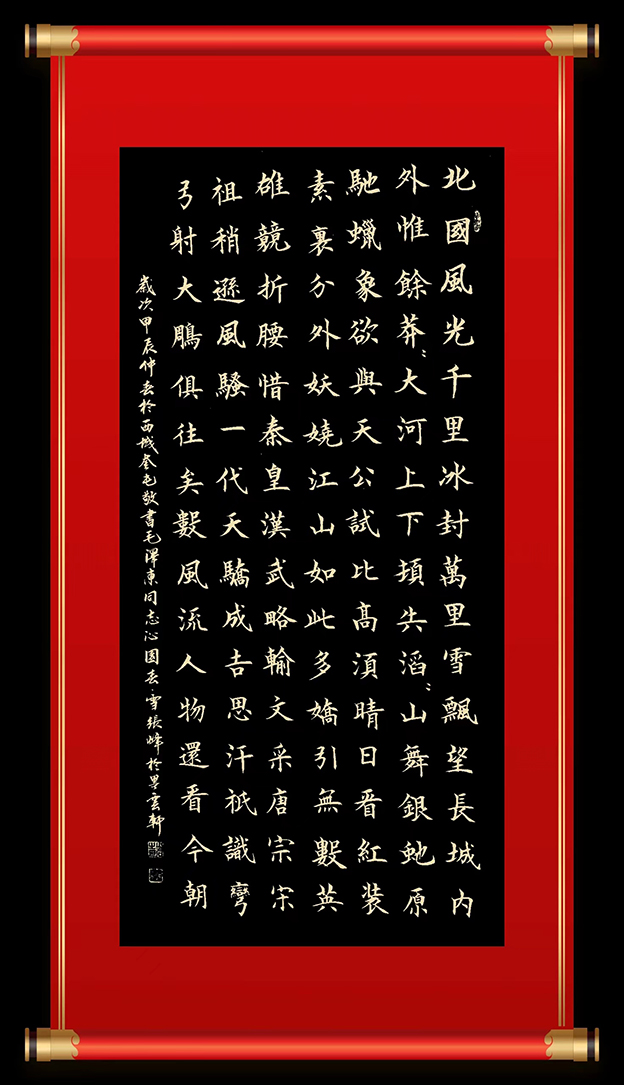 北國風光千里冰封萬里雪飄望長城内
外惟餘莽〻大河上下頓失滔〻山舞銀虵原
馳蠟象欲與天公試比高須晴日看紅裝
素裹分外妖嬈江山如此多嬌引無數英
雄競折腰惜秦皇漢武略輸文采唐宗宋
祖稍遜風騷一代天驕成吉思汗祇識彎
弓射大鵰俱往矣數風流人物還看今朝
歲次甲辰仲春於西域奎屯敬書毛澤東同志沁園春雪張峰於雲軒